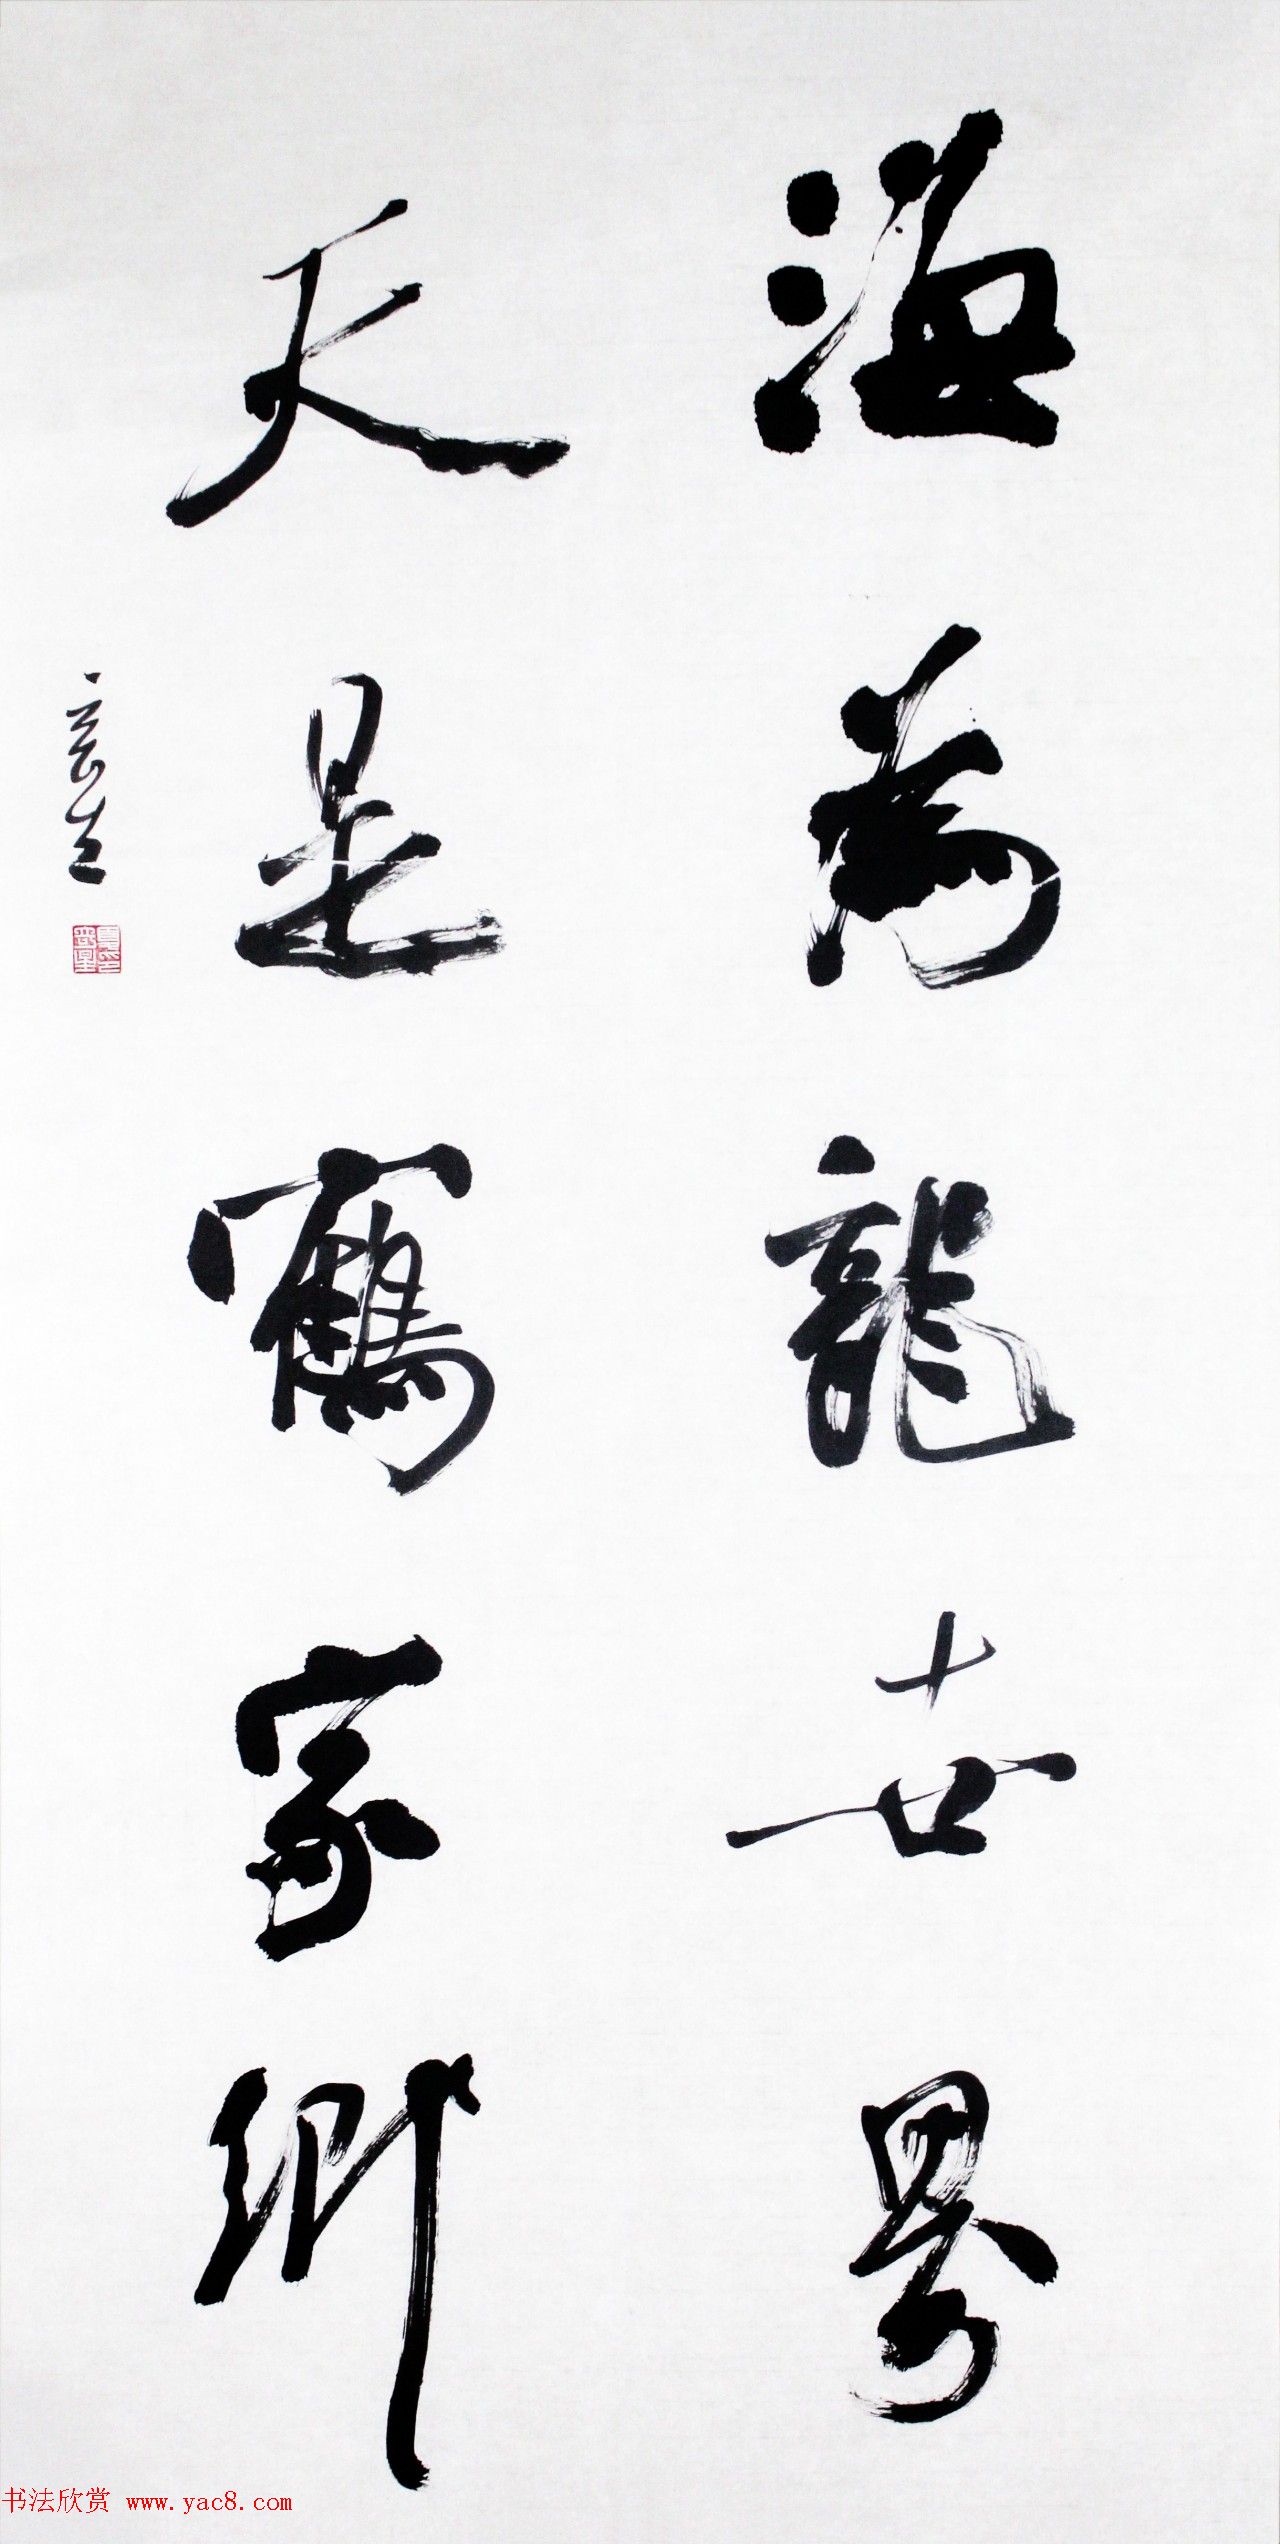 海為龍世界
天是鶴家鄉
书法欣赏 www.yac8.com